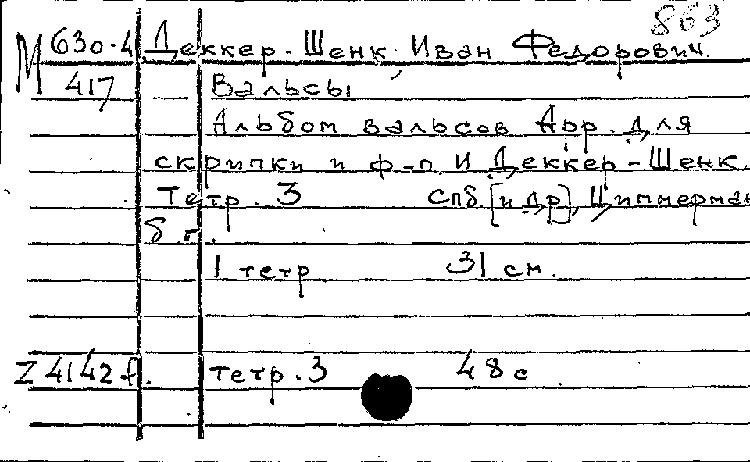 863
М 630-4 Деккер-Шенк, Иван Федорович.
417 Вальсы
Альбом вальсов Арр. для
скрипки и ф-п. И Деккер-Шенк.
Тетр. 3 Спб. [и др], Циммерман
б.г.
1 тетр 31 см.
Z 4142 f. тетр. 3 48 с